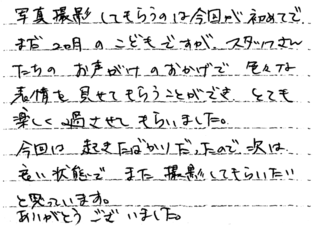 写真撮影してもらうのは今回が初めてで
まだ2ヵ月のこどもですが、スタッフさん
たちのお声がけのおかげで色々な
表情を見せてもらうことができ、とても
楽しく過させてもらいました。
今回は起きたばかりだったので次は
良い状態でまた撮影してもらいたい
と思っています。
ありがとうございました。